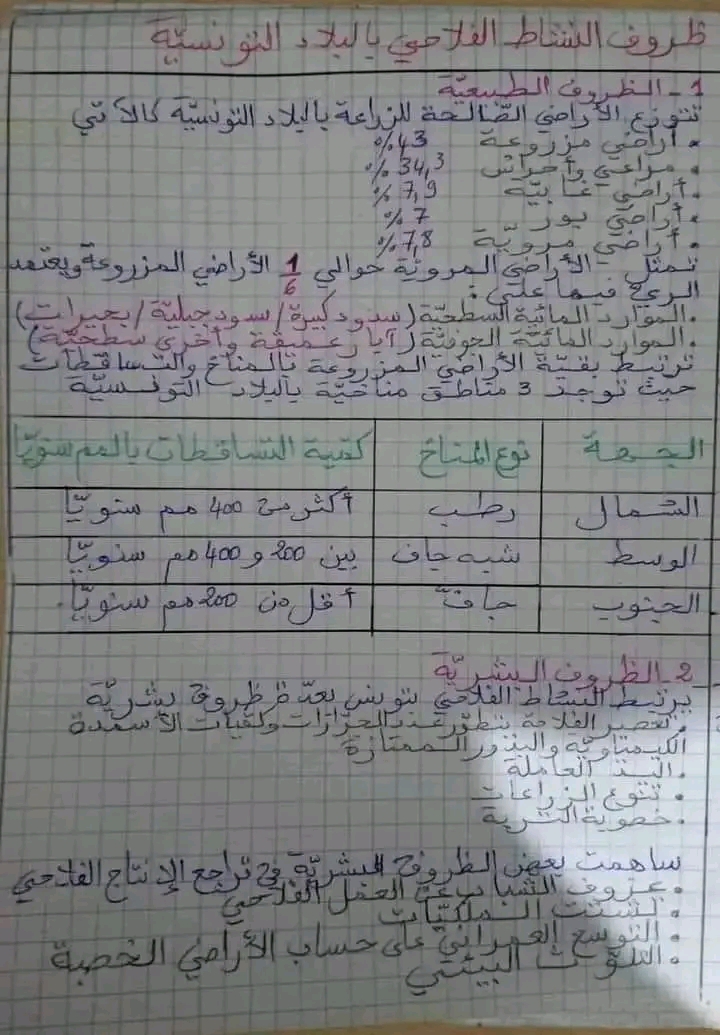 ظروف النشاط الفلاحي بالبلاد التونسيّة
1 - الظروف الطبيعيّة
تتوزع الأراضي الصّالحة للزراعة بالبلاد التونسيّة كالآتي
• أراضي مزروعة 43%
• مراعي وأحراش 34,3%
• أراضي غابيّة 7,9%
• أراضي بور 7%
• أراضي مرويّة 7,8%
تمثل الأراضي المرويّة حوالي 1/6 الأراضي المزروعة ويعتمد
الريّ فيها على :
• الموارد المائيّة السطحيّة (سدود كبيرة / سدود جبليّة / بحيرات)
• الموارد المائيّة الجوفيّة (آبار عميقة وأخرى سطحيّة)
ترتبط بقيّة الأراضي المزروعة بالمناخ والتساقطات
حيث توجد 3 مناطق مناخيّة بالبلاد التونسيّة
الجهة نوع المناخ كمّية التساقطات بالمم سنويّا
الشمال رطب أكثر من 400 مم سنويّا
الوسط شبه جاف بين 200 و 400 مم سنويّا
الجنوب جافّ أقل من 200 مم سنويّا.
2 - الظروف البشريّة
يرتبط النشاط الفلاحي بتونس بعدّة ظروف بشريّة
• تعصير الفلاحة بتطوّر عدد الجرّارات وكميّات الأسمدة
الكيمياويّة والبذور الممتازة
• اليد العاملة
• تنوع الزراعات
• خصوبة التربة
ساهمت بعض الظروف البشريّة في تراجع الإنتاج الفلاحي
• عزوف الشباب عن العمل الفلاحي
• تشتت الملكيّات
• التوسع العمرانيّ على حساب الأراضي الخصبة
• التلوّث البيئي